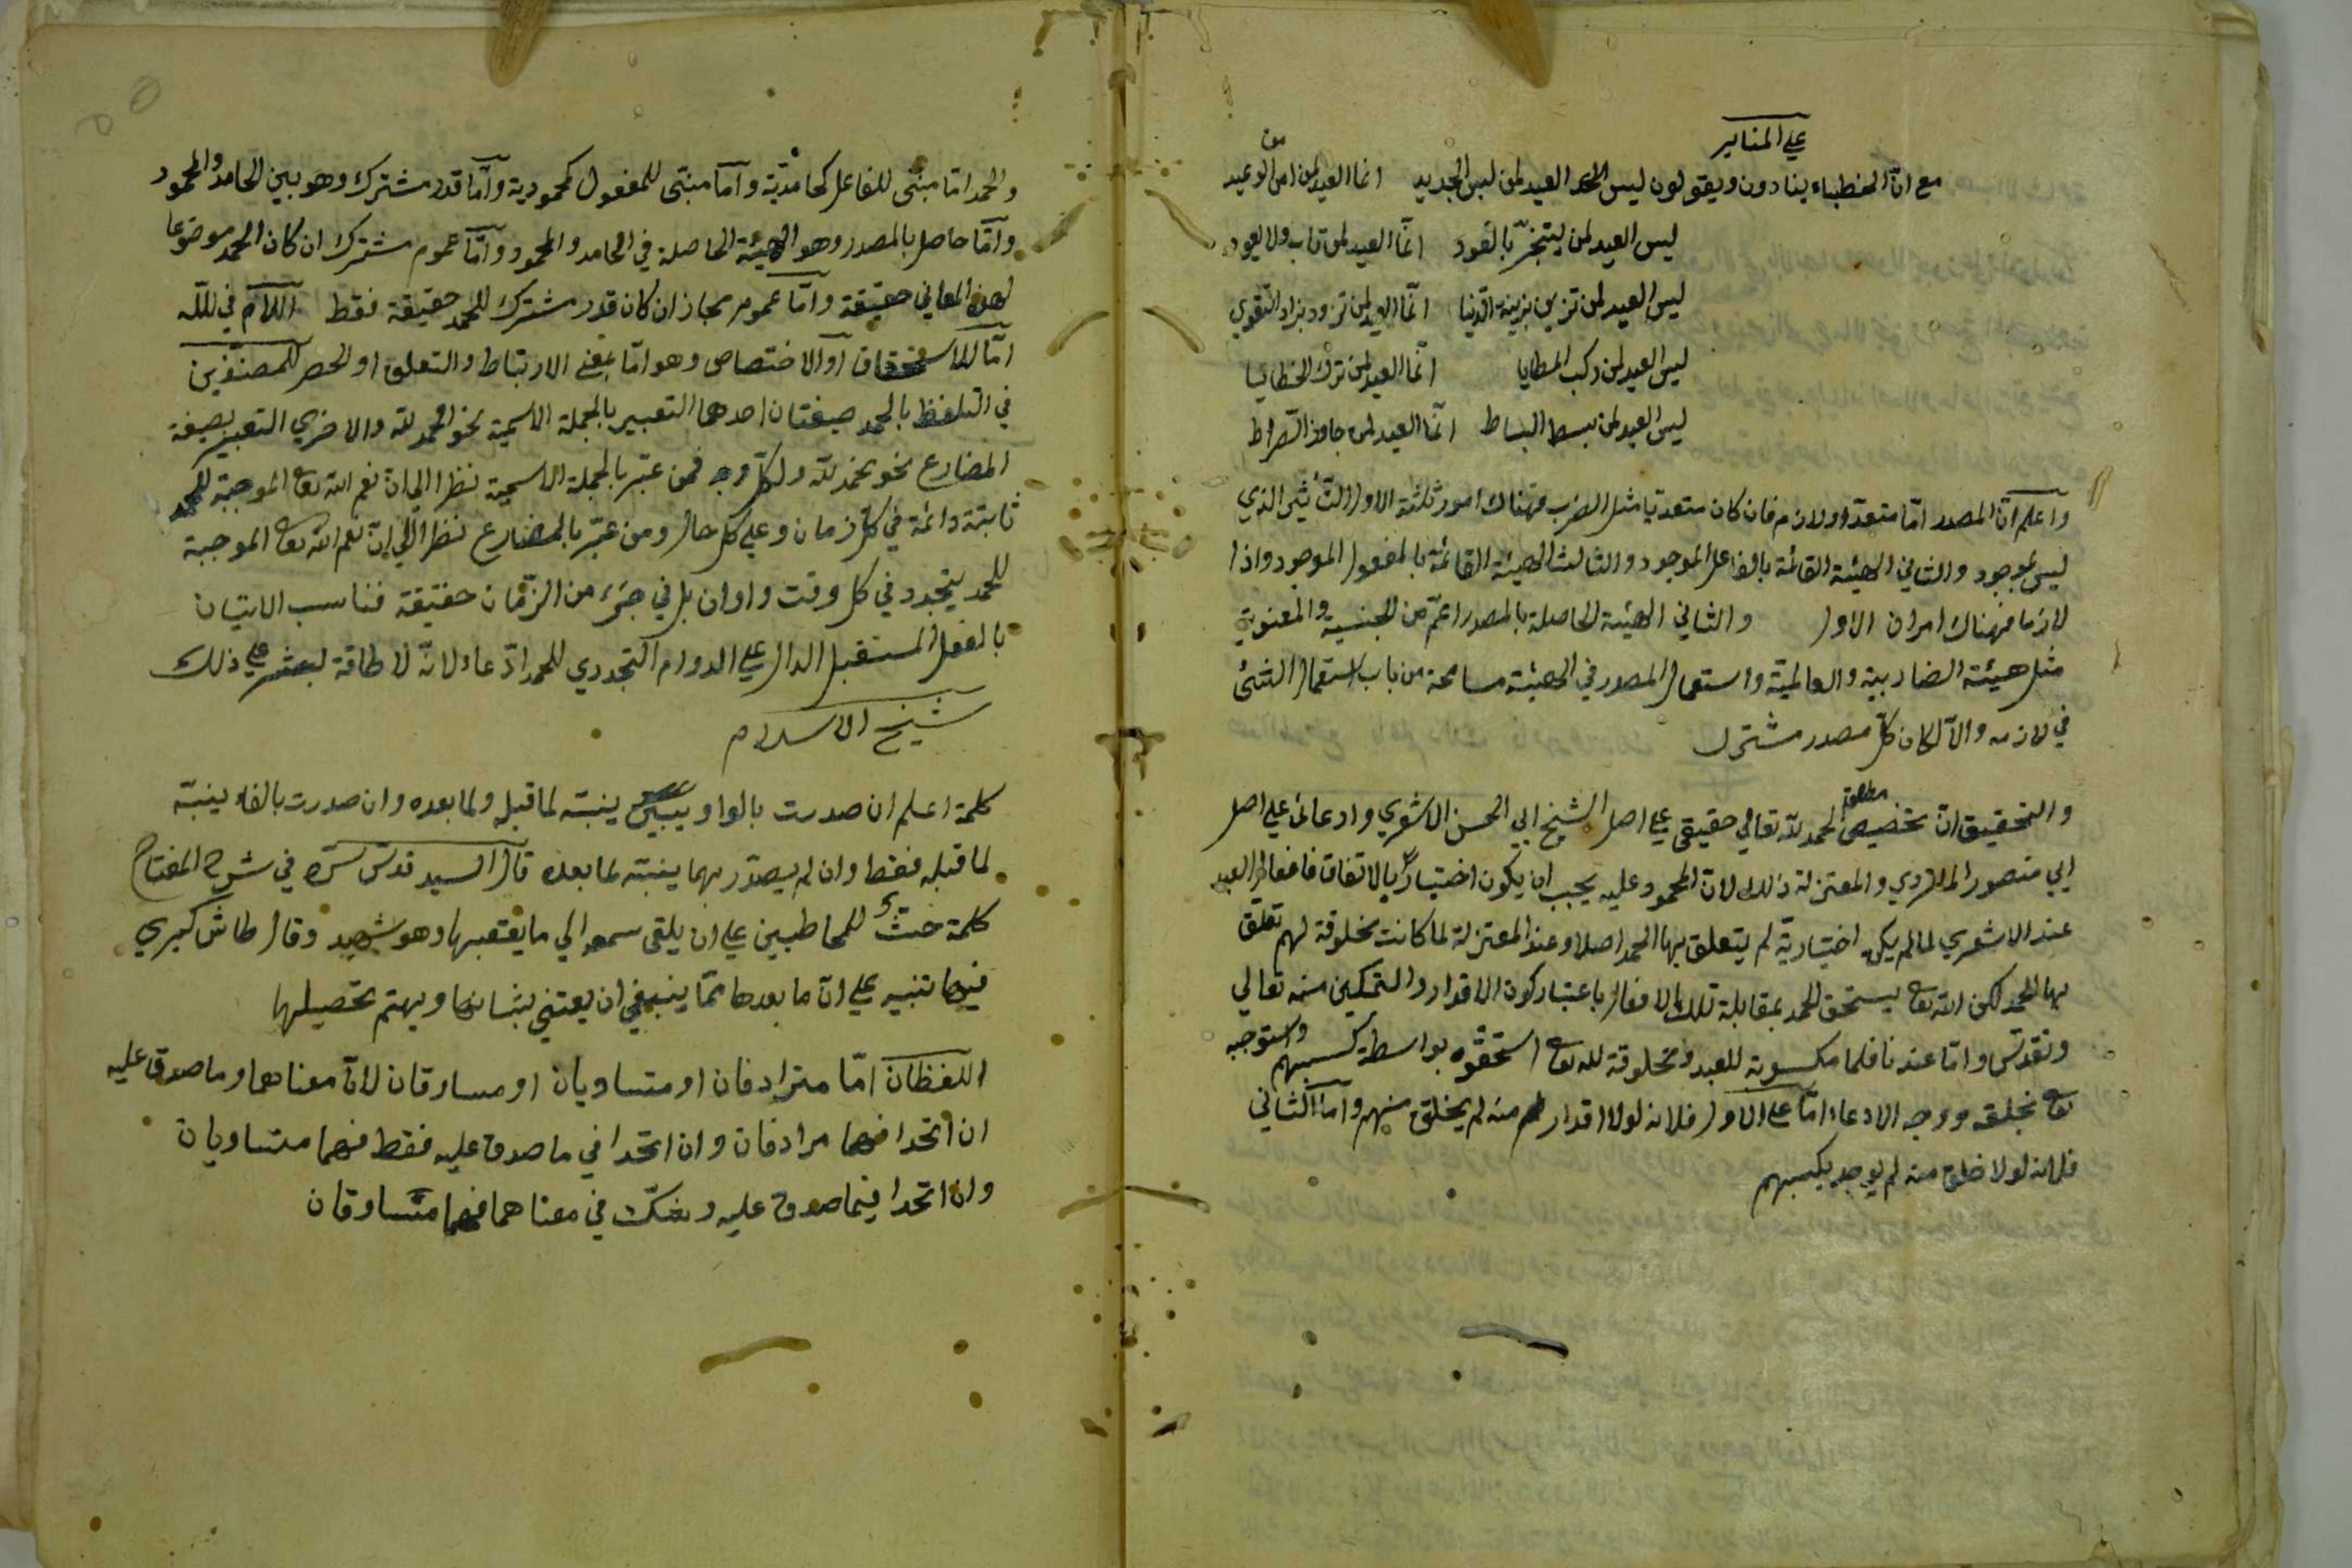 على المنابر
مع انّ الخطباء ينادون ويقولون ليس العيد لمن لبس الجديد انما العيد لمن امن من الوعيد
ليس العيد لمن يتبخّر بالعود انّما العيد لمن تاب ولا يعود
ليس العيد لمن تزين بزينة الدّنيا انّما العيد لمن تزود بزاد التقوي
ليس العيد لمن ركب المطايا انّما العيد لمن ترك الخطايا
ليس العيد لمن بسط البساط انّما العيد لمن جاوز الصّراط
واعلم انّ المصدر امّا متعدّ او لازم فان كان متعديا مثل الضرب فهناك امور ثلثة الاول التأثير الذي
ليس بموجود والثاني الهيئة القائمة بالفاعل الموجود والثالث الهيئة القائمة بالمفعول الموجود واذا
لازما فهناك امران الاول والثاني الهيئة الحاصلة بالمصدر اعمّ من الجنسية والمعنوية
مثل هيئة الضاربية والعالمية واستعمال المصدر في الهيئة مسامحة من باب استعمال الشئ
في لازمه والّا لكان كلّ مصدر مشترك
والتحقيق انّ تخصيص مطلق الحمد للّه تعالي حقيقي علي اصل الشيخ ابي الحسن الاشعري وادعائ علي اصل
ابي منصور الماتريدي والمعتزلة ذلك لانّ المحمود عليه يجب ان يكون اختياريّا بالاتفاق فافعال العبد
عند الاشعري لما لم يكن اختيارية لم يتعلق بها الحمد اصلا وعند المعتزلة لما كانت مخلوقة لهم تعلّق
بها الحمد لكن اللّه تع يستحق الحمد بمقابلة تلك الافعال باعتبار كون الاقدار والتمكين منه تعالي
وتقدّس وامّا عندنا فلما مكسوبة للعبد ومخلوقة لله تع استحقّوه بواسطة كسبهم واستوجبه
تع بخلقه ووجه الادعاء امّا علي الاول فلانه لولا اقدار لهم منه لم يخلق منهم وامّا الثاني
فلانه لولا خلق منه لم يوجد بكسبهم
والحمد امّا مبنّى للفاعل كحامديّة وامّا مبنّى للمفعول كمحمودية وامّا قدر مشترك وهو بين الحامد والمحمود
وامّا حاصل بالمصدر وهو الهيئة الحاصلة في الحامد والمحمود وامّا عموم مشترك ان كان الحمد موضوعا
لهذه المعاني حقيقة وامّا عموم مجاز ان كان قدر مشترك للحمد حقيقة فقط اللّام في للّه
امّا للاستحقاق او الاختصاص وهو امّا بمعني الارتباط والتعلق او الحصر للمصنّفين
في التلفظ بالحمد صيغتان احدهما التعبير بالجملة الاسمية نحو الحمد للّه والاخري التعبير بصيغة
المضارع نحو نحمد للّه ولكلّ وجه فمن عبّر بالجملة الاسمية نظرا الي انّ نعم اللّه تع الموجبة للحمد
ثابتة دائمة في كلّ زمان وعلي كل حال ومن عبّر بالمضارع نظرا الي انّ نعم اللّه تع الموجبة
للحمد يتجدد في كل وقت واوان بل في جزء من الزّمان حقيقة فناسب الاتيان
بالفعل المستقبل الدال علي الدوام التجددي للحمد ادّعاء لانّه لا طاقة لبعشر علي ذلك
شيخ الاسلام
كلمة اعلم ان صدرت بالواو ينبّه لما قبله ولما بعده وان صدرت بالفاء ينبّه
لما قبله فقط وان لم يصدّر بهما ينبّه لما بعده قال السيد قدّس سرّه في شرح المفتاح
كلمة حثّ للمخاطبين علي ان يلقى سمعه الي ما يعقبها وهو شهيد وقال طاش كبري
فيها تنبيه علي انّ ما بعدها ممّا ينبغي ان يعتني بشانها ويهتم بتحصيلها
اللفظان امّا مترادفان او متساويان او مساوقان لانّ معناهما وما صدق عليه
ان اتحدا فهما مرادفان وان اتحدا في ما صدق عليه فقط فهما متساويان
وان اتحدا فيما صدق عليه وشكّ في معناهما فهما متساوقان